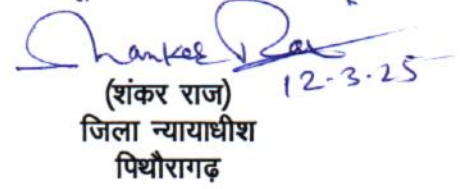 Shankar Raj
12-3-25
(शंकर राज)
जिला न्यायाधीश
पिथौरागढ़